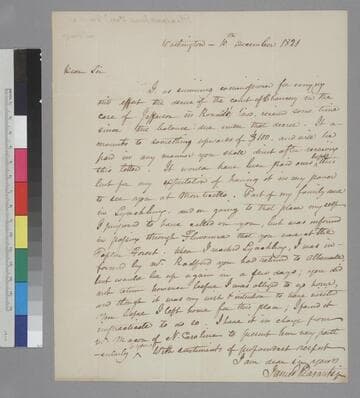 Washington - 10th December 1821
Dear Sir
As receiving commissioner for carrying
into effect the decree of the court of Chancery in the
case of Jefferson vs Ronald's exors, received some time
since the balance due under that decree. It a-
mounts to something upwards of $400, and will be
paid in any manner you shall direct after receiving
this letter. It would have been paid over before this
but for my expectation of having it in my power
to see you at Monticello. Part of my family were
in Lynchburg, and on going to that place my self
I purposed to have called on you, but was informed
in passing through Fluvanna that you were at the
Poplar Forest. When I reached Lynchburg, I was in-
formed by Mr Radford you had returned to Albemarle,
but would be up again in a few days; you did
not return however before I was obliged to go home,
and though it was my wish & intention to have visited
you before I left home for this place, I found it
impracticable to do so. I have it in charge from
Mr Macon of N. Carolina to present him very part-
icularly to you. With sentiments of profoundest respect
I am dear Sir yours
James Pleasants jr